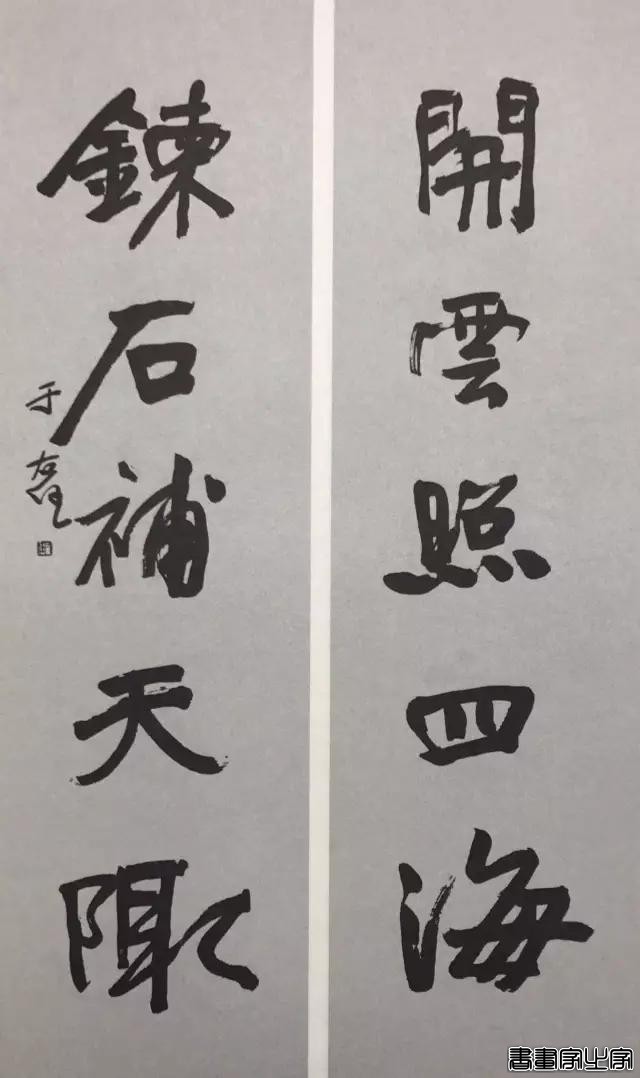 開雲照四海
鍊石補天陬
于右任
書畫家之家